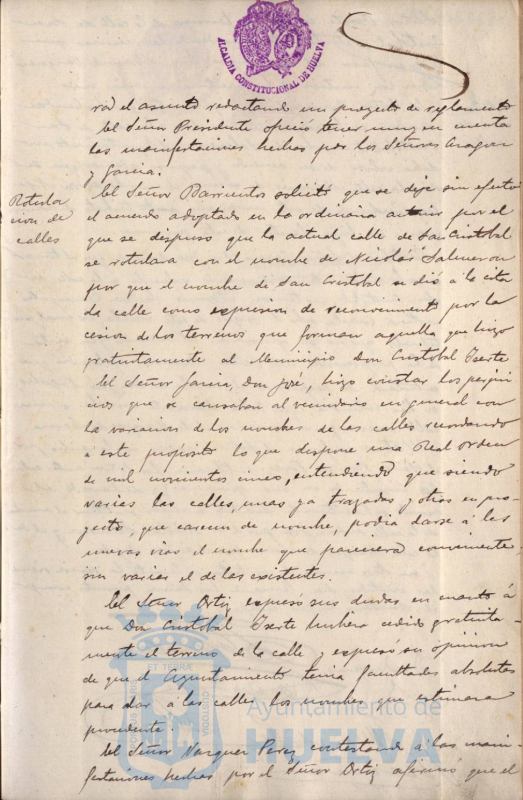 ALCALDIA CONSTITUCIONAL DE HUELVA
rá el asunto redactando un proyecto de reglamento
El Señor Presidente ofreció tener muy en cuenta
las manifestaciones hechas por los Señores Aragon
y Garcia.
Rotula
cion de
calles
El Señor Barrientos solicitó que se deje sin efecto
el acuerdo adoptado en la ordinaria anterior por el
que se dispuso que la actual calle de San Cristobal
se rotulara con el nombre de Nicolás Salmeron
por que el nombre de San Cristobal se dió á la cita
da calle como expresion de reconocimiento por la
cesion de los terrenos que forman aquella que hizo
gratuitamente al Municipio Don Cristobal
El Señor Garcia, Don José, hizo constar los perjui
cios que se causaban al vecindario en general con
la variacion de los nombres de las calles recordando
a este propósito lo que dispone una Real orden
de mil novecientos cinco, entendiendo que siendo
varias las calles, unas ya trazadas y otras en pro
yecto, que carecen de nombre, podia darse á las
nuevas vias el nombre que pareciera conveniente
sin variar el de las existentes.
El Señor Ortiz expresó sus dudas en cuanto á
que Don Cristobal hubiera cedido gratuita-
mente el terreno de la calle y expresó su opinion
de que el Ayuntamiento tenia facultades absolutas
para dar á las calles los nombres que estimara
procedente.
El Señor Vazquez Perez contestando á las mani
festaciones hechas por el Señor Ortiz afirmó que el
Ayuntamiento de
HUELVA